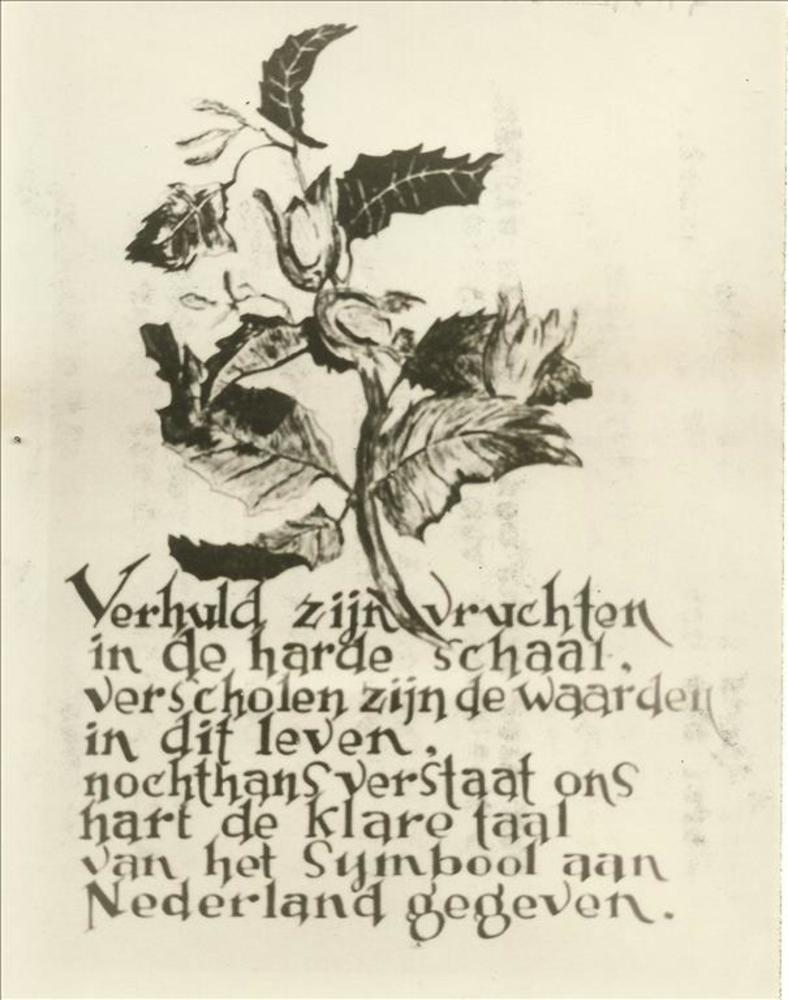 Verhuld zijn vruchten
in de harde schaal,
verscholen zijn de waarden
in dit leven,
nochthans verstaat ons
hart de klare taal
van het Symbool aan
Nederland gegeven.